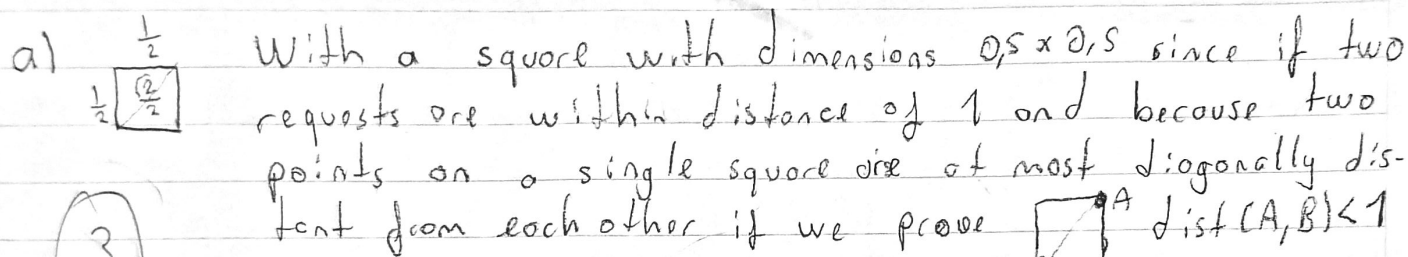 a) 1/2 With a square with dimensions 0,5 x 0,5 since if two
1/2 √2/2 requests are within distance of 1 and because two
points on a single square are at most diagonally dis-
tant from each other if we prove A dist(A,B)<1